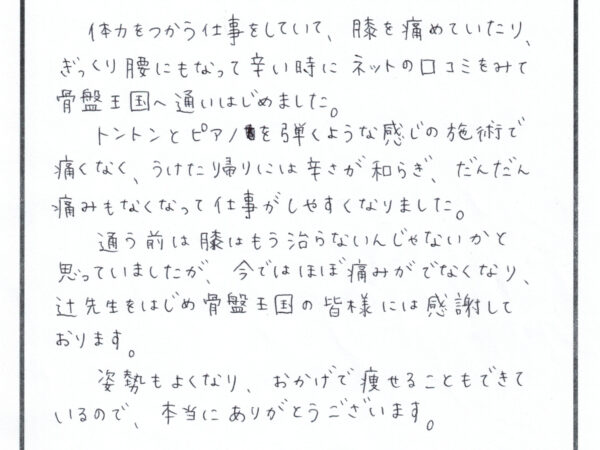 体力をつかう仕事をしていて、膝を痛めていたり、
ぎっくり腰にもなって辛い時に ネットの口コミをみて
骨盤王国へ通いはじめました。
トントンとピアノを弾くような感じの施術で
痛くなく、うけたり帰りには辛さが和らぎ、だんだん
痛みもなくなって仕事がしやすくなりました。
通う前は膝はもう治らないんじゃないかと
思っていましたが、今ではほぼ痛みがでなくなり、
辻先生をはじめ骨盤王国の皆様には感謝して
おります。
姿勢もよくなり、おかげで痩せることもできて
いるので、本当にありがとうございます。